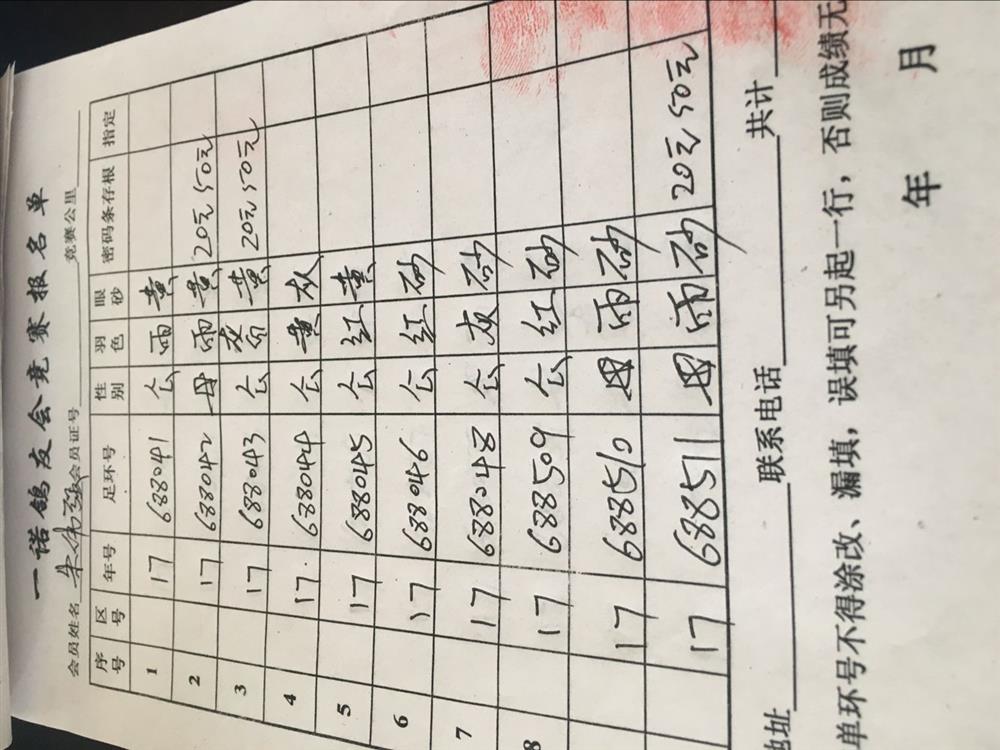 一诺鸽友会竞赛报名单
会员姓名 会员证号 竞赛公里
序号 区号 年号 足环号 性别 羽色 眼砂 密码条存根 指定
1 17 688041 公 雨 黄
2 17 688042 母 雨 黄 20元50元
3 17 688043 公 黄 20元50元
4 17 688044 公 黄 灰
5 17 688045 公 红 黄
6 17 688046 公 红 砂
7 17 688048 公 灰 砂
8 17 688509 公 红 砂
17 688510 母 雨 砂
17 688511 母 雨 砂 20元50元
地址 联系电话 共计
单环号不得涂改、漏填，误填可另起一行，否则成绩无
年 月